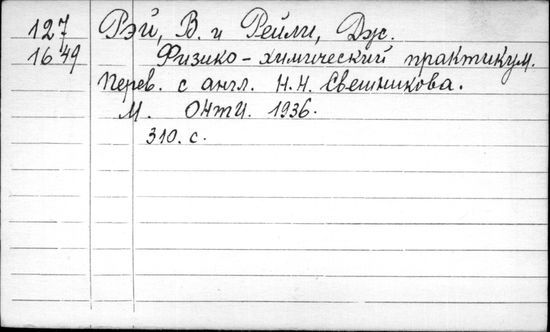 127 Рэй, В. и Рейли, Дж.
1649 Физико-химический практикум.
Перев. с англ. Н.Н. Свешникова.
М. ОНТИ. 1936.
310. с.